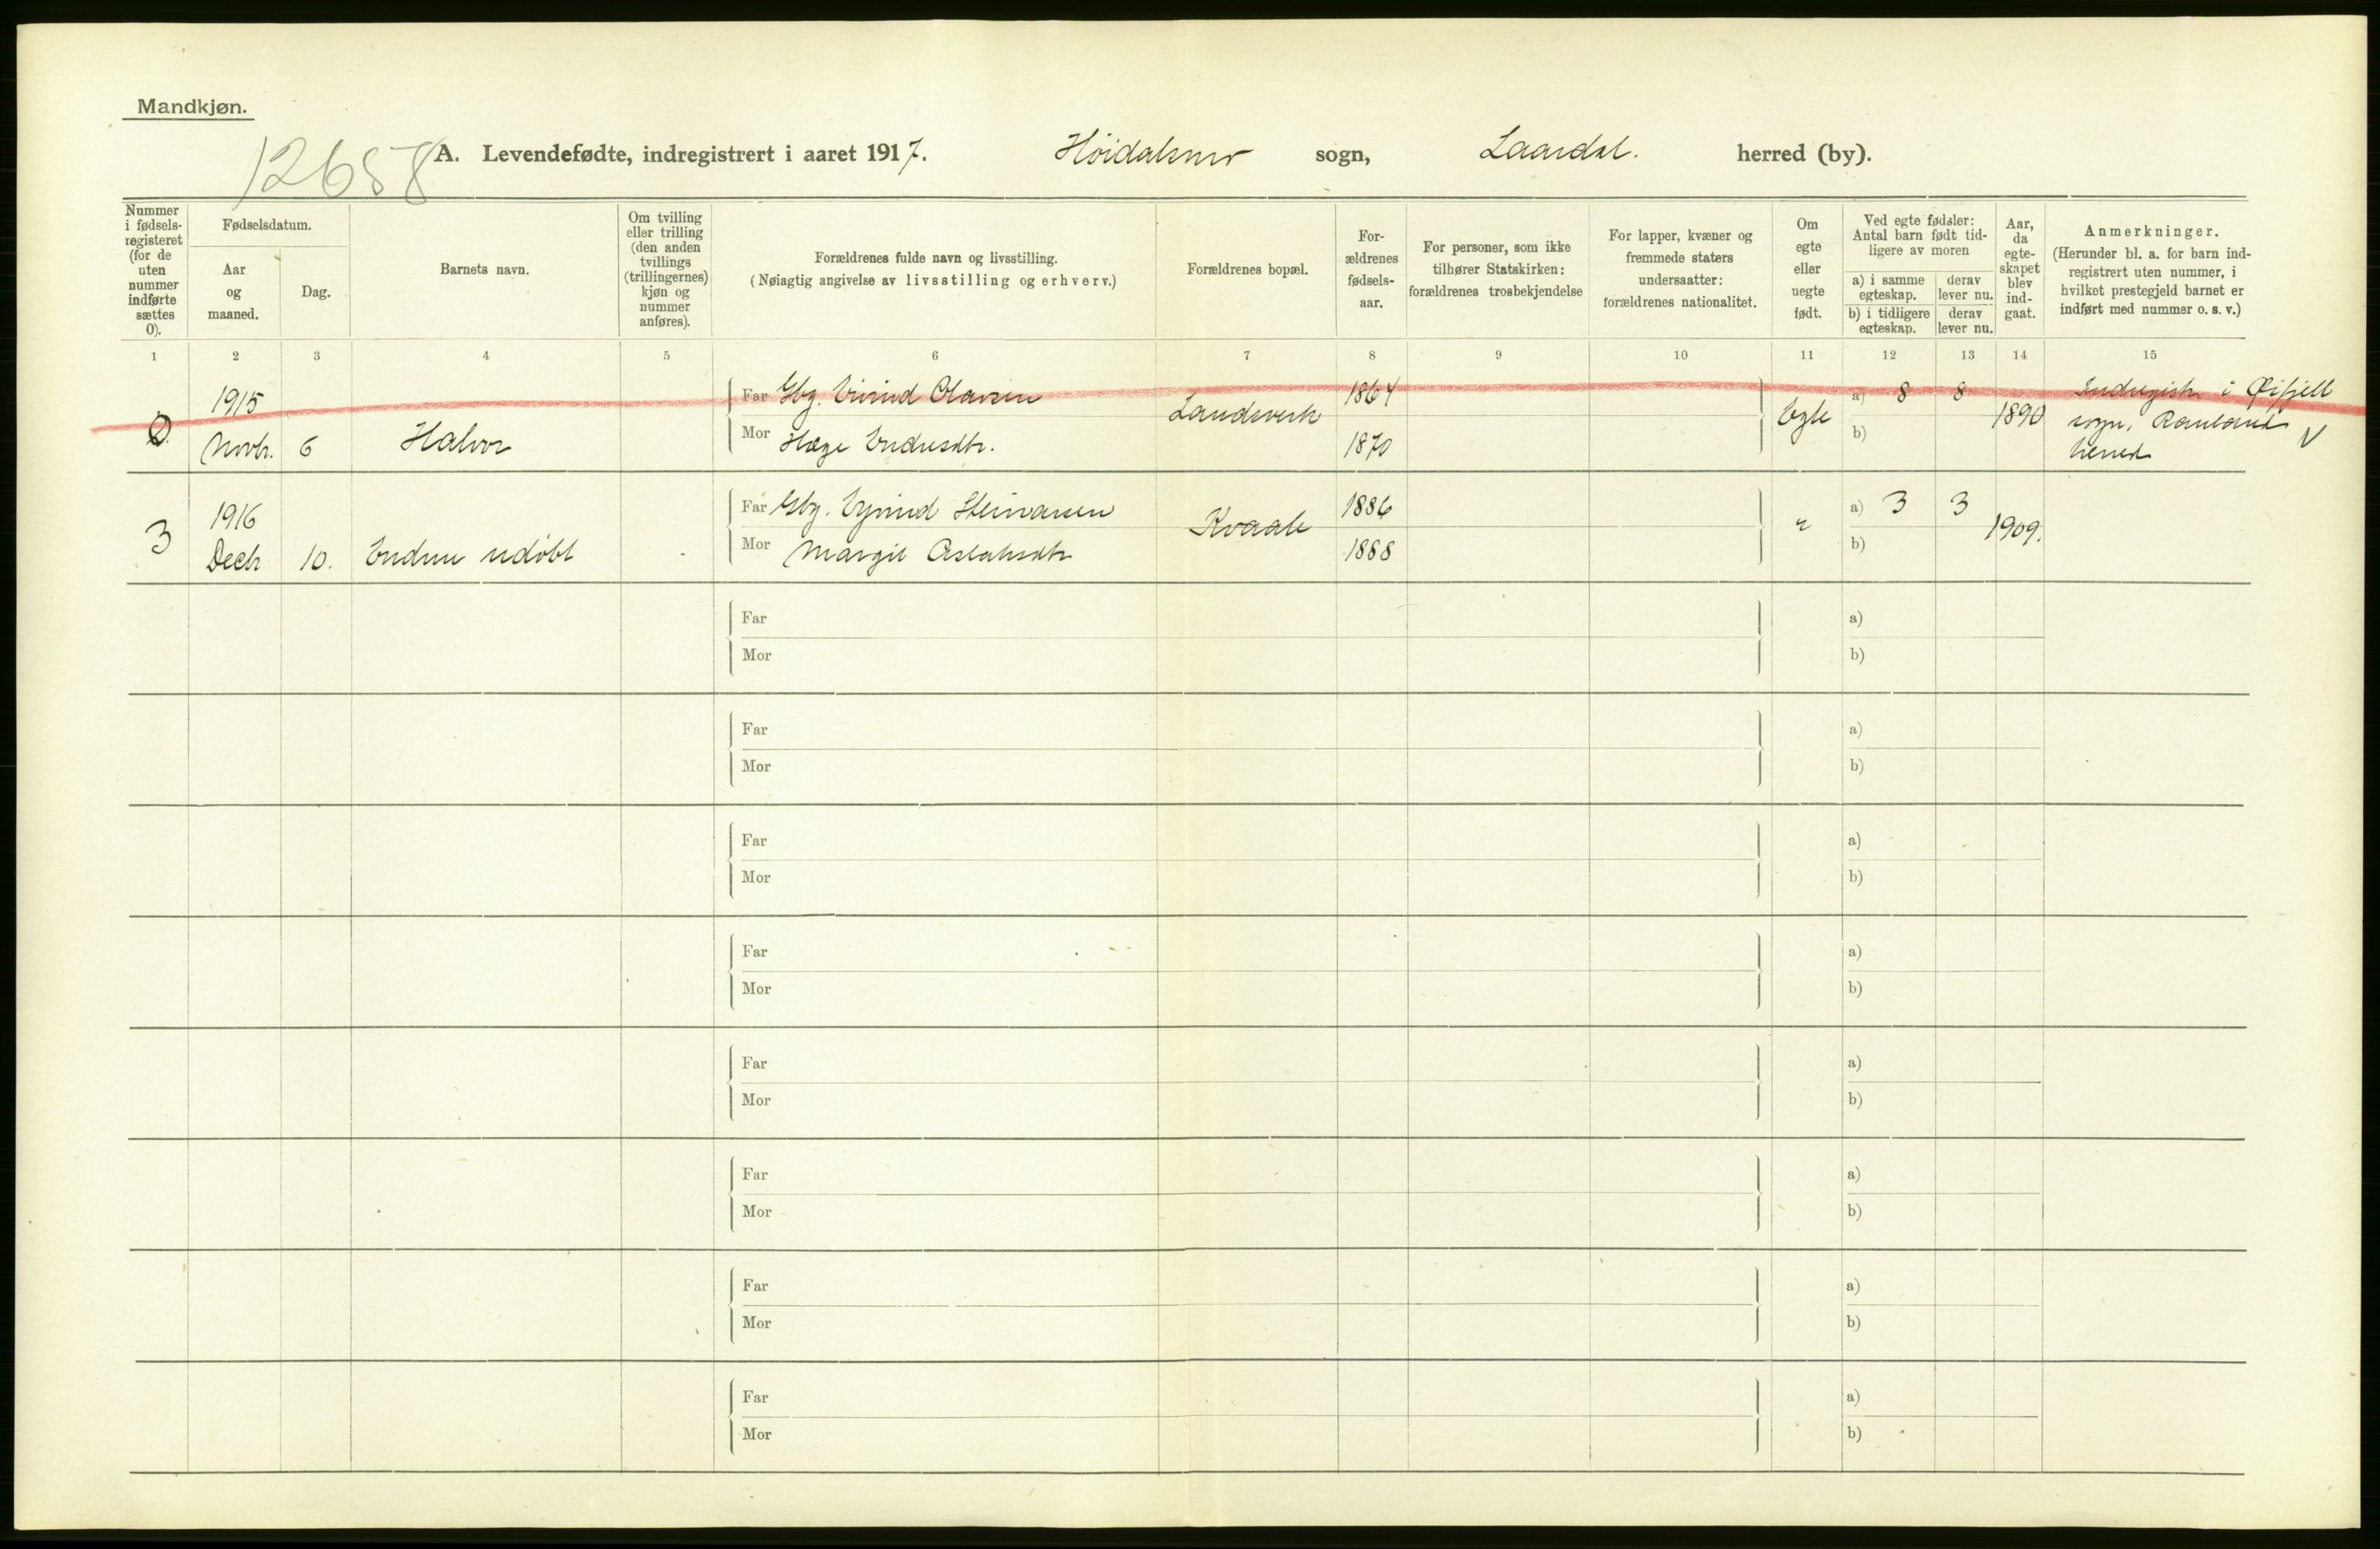 Mandkjøn.
12658
A. Levendefødte, indregistrert i aaret 1917. Høidalsmo sogn, Laardal. herred (by).
Nummer i fødsels-registeret (for de uten nummer indførte sættes 0).
Fødselsdatum.
Aar og maaned.
Dag.
Barnets navn.
Om tvilling eller trilling (den anden tvillings (trillingernes) kjøn og nummer anføres).
Forældrenes fulde navn og livsstilling.
(Nøiagtig angivelse av livsstilling og erhverv.)
Forældrenes bopæl.
For-ældrenes fødsels-aar.
For personer, som ikke tilhører Statskirken: forældrenes trosbekjendelse
For lapper, kvæner og fremmede staters undersaatter: forældrenes nationalitet.
Om egte eller uegte født.
Ved egte fødsler: Antal barn født tid-ligere av moren
a) i samme egteskap.
derav lever nu.
b) i tidligere egteskap.
derav lever nu.
Aar, da egte-skapet blev ind-gaat.
Anmerkninger.
(Herunder bl. a. for barn ind-registrert uten nummer, i hvilket prestegjeld barnet er indført med nummer o. s. v.)
1 2 3 4 5 6 7 8 9 10 11 12 13 14 15
0. 1915 Novbr. 6 Halvor
Far Gbr. Eivind Olavsen Landsverk 1864
Mor Hæge Endresdtr. 1870
Egte a) 8 8 1890
b)
Indregistr. i Øifjell
sogn, Rauland
herred
V
3 1916 Decbr 10. Endre udøbt
Far Gbr. Eyvind Steinarsen Kvaale 1886
Mor Margit Aslaksdtr 1888
" a) 3 3 1909.
b)
Far a)
Mor b)
Far a)
Mor b)
Far a)
Mor b)
Far a)
Mor b)
Far a)
Mor b)
Far a)
Mor b)
Far a)
Mor b)
Far a)
Mor b)